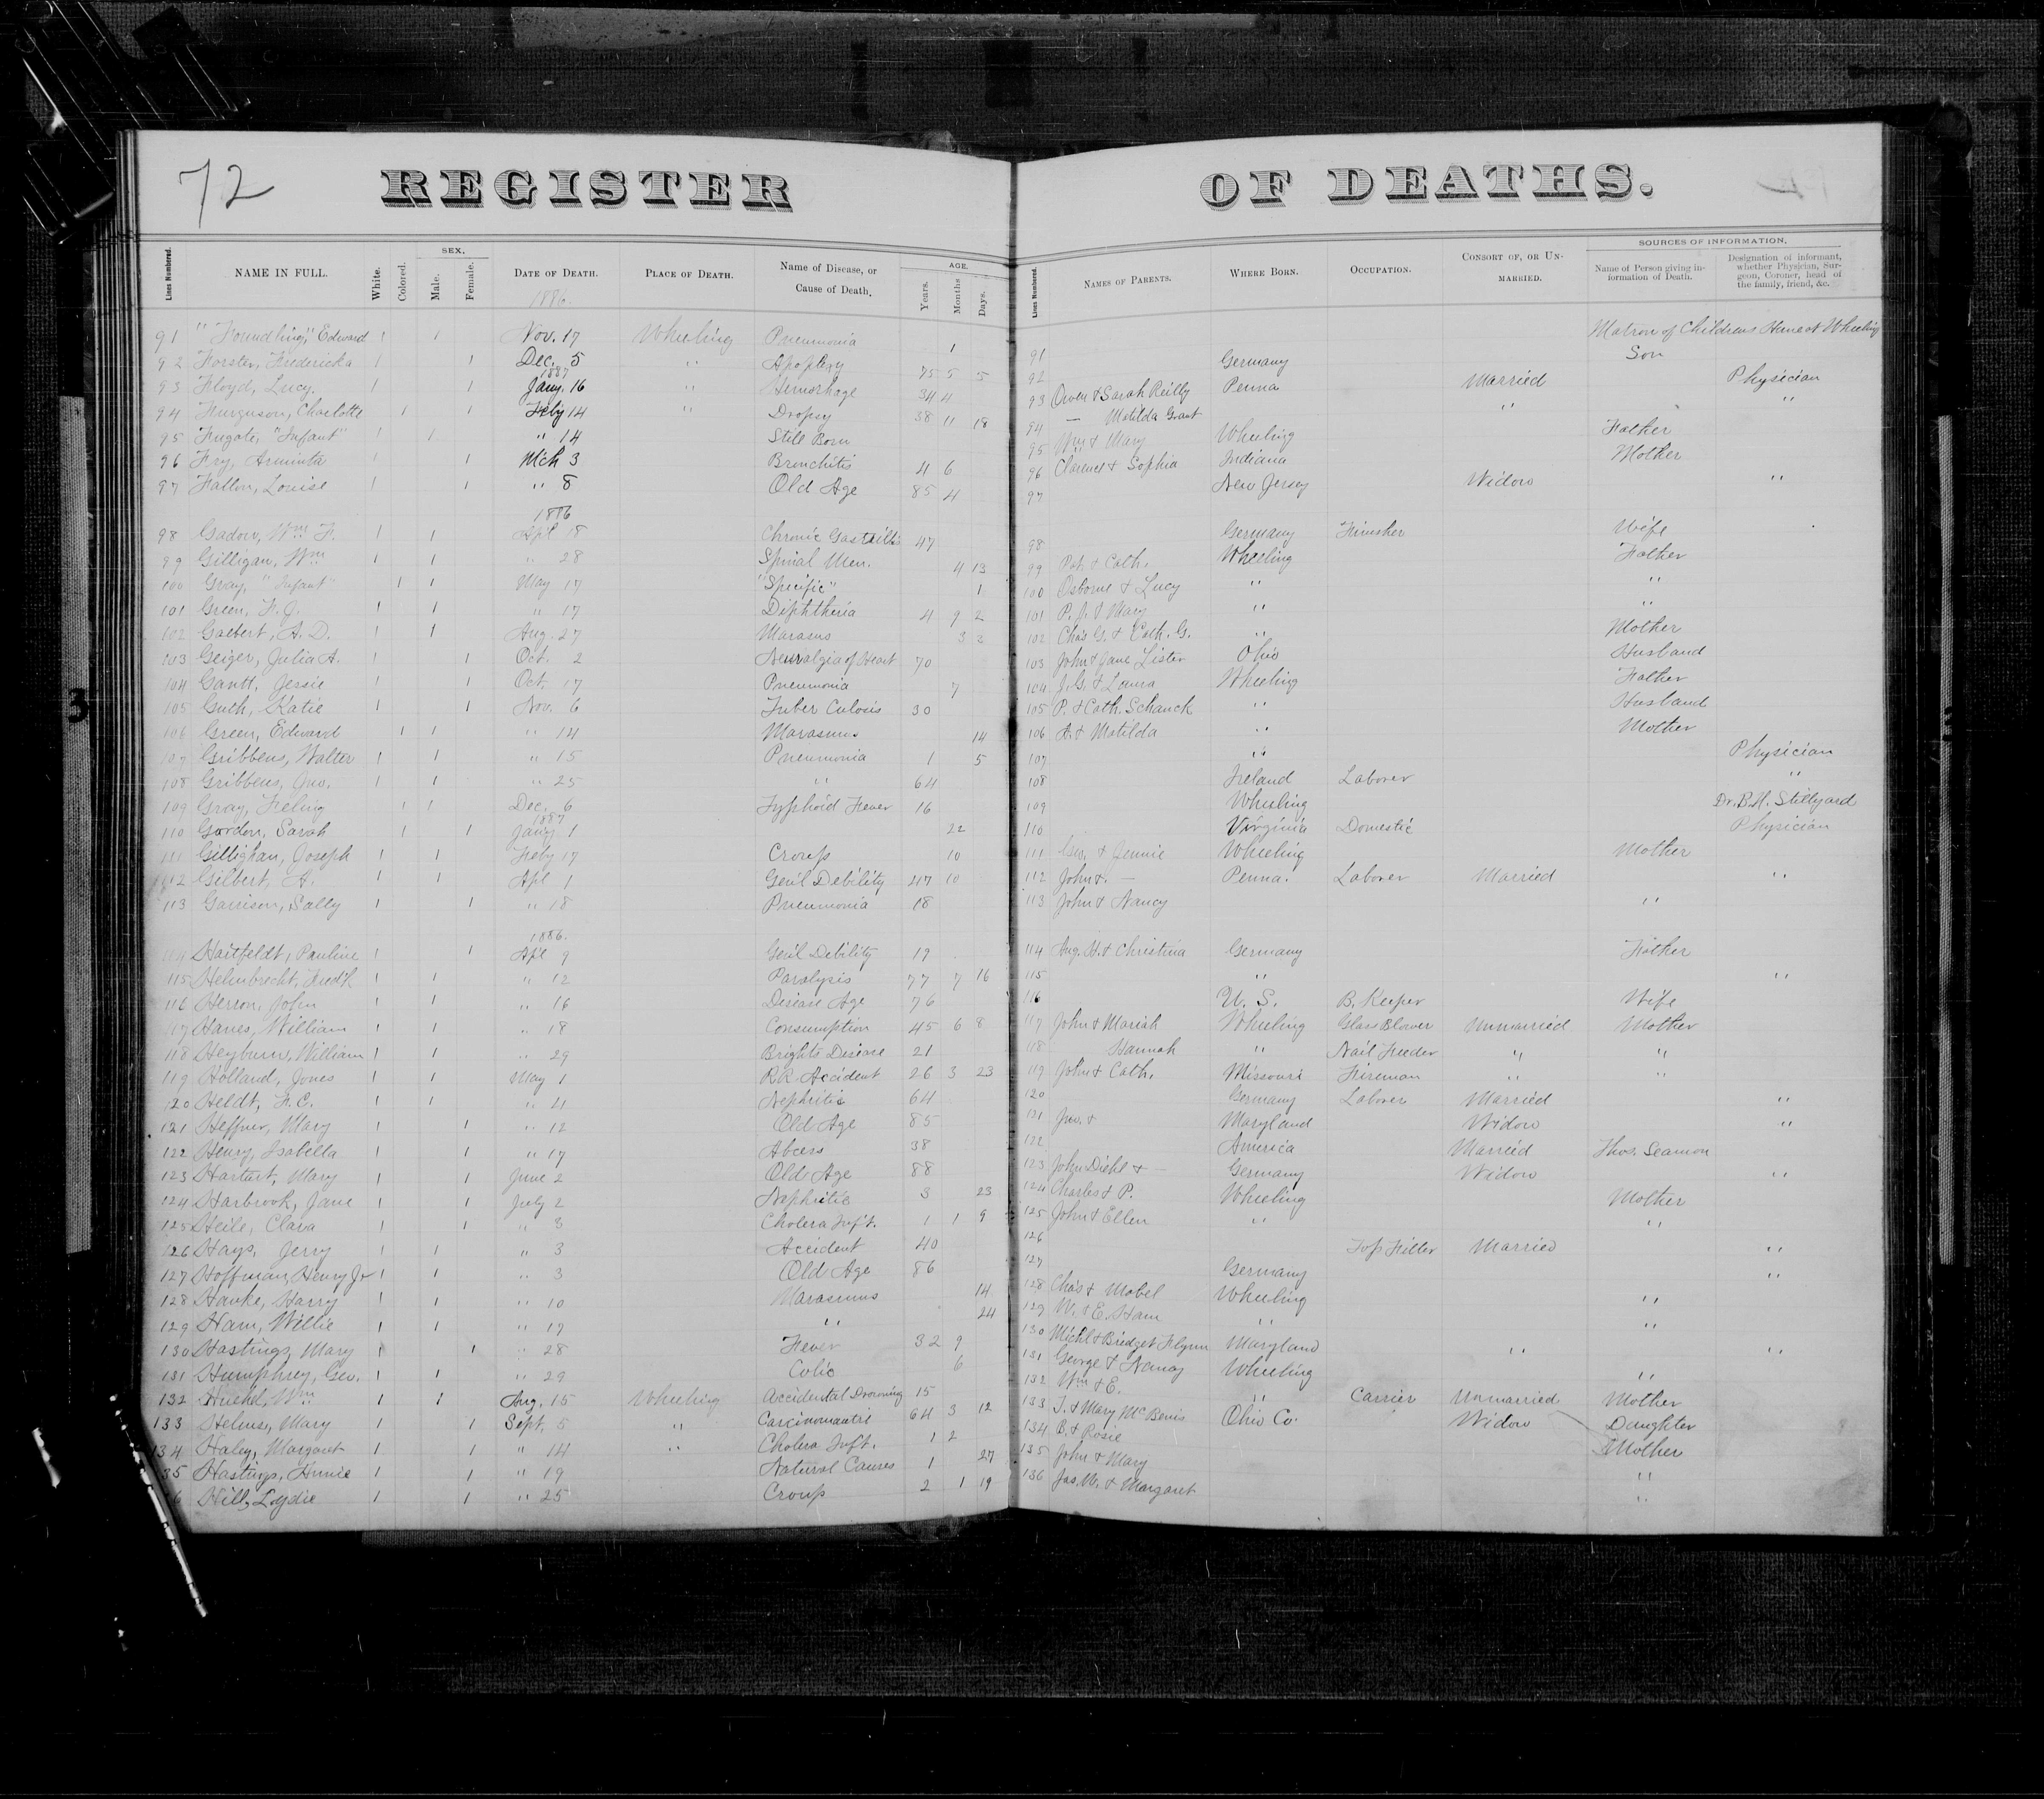 72 REGISTER OF DEATHS.
Lines Numbered. NAME IN FULL. White. Colored. SEX. Male. Female. DATE OF DEATH. PLACE OF DEATH. Name of Disease, or Cause of Death. AGE. Years. Months Days. Lines Numbered. NAMES OF PARENTS. WHERE BORN. OCCUPATION. CONSORT OF, OR UNMARRIED. SOURCES OF INFORMATION. Name of Person giving information of Death. Designation of informant, whether Physician, Surgeon, Coroner, head of the family, friend, &c.
1886.
91 "Foundling," Edward 1 1 Nov. 17 Wheeling Pneumonia 1 91 Matron of Childrens Home of Wheeling
92 Forster, Fredericka 1 1 Dec. 5 " Apoplexy 75 5 5 92 Germany Son
1887
93 Floyd, Lucy. 1 1 Jany. 16 " Hemorhage 34 4 93 Owen & Sarah Reilly Penna Married Physician
94 Furguson, Charlotte 1 1 Feby 14 " Dropsy 38 11 18 94 — Matilda Grant " "
95 Fugate, "Infant" 1 1 " 14 Still Born 95 Wm & Mary Wheeling Father
96 Fry, Arminta 1 1 Mch 3 Bronchitis 4 6 96 Clarence & Sophia Indiana Mother
97 Fallon, Louise 1 1 " 8 Old Age 85 4 97 New Jersey Widow "
1886
98 Gadow, Wm F. 1 1 Apl 18 Chronic Gastritis 47 98 Germany Finisher Wife
99 Gilligan, Wm 1 1 " 28 Spinal Men. 4 13 99 Pat. & Cath. Wheeling Father
100 Gray, "Infant" 1 1 May 17 "Specific" 1 100 Osborne & Lucy " "
101 Green, F. J. 1 1 " 17 Diphtheria 4 9 2 101 P. J. & Mary " "
102 Galbert, A. D. 1 1 Aug. 27 Marasus 3 2 102 Chas G. & Cath. G. " Mother
103 Geiger, Julia A. 1 1 Oct. 2 Neuralgia of Heart 70 103 John & Jane Lister Ohio Husband
104 Gantt, Jessie 1 1 Oct. 17 Pneumonia 7 104 J. G. & Laura Wheeling Father
105 Guth, Katie 1 1 Nov. 6 Tuber Culosis 30 105 P. & Cath. Schanck " Husband
106 Green, Edward 1 1 " 14 Marasmus 14 106 A. & Matilda " Mother
107 Gribbens, Walter 1 1 " 15 Pneumonia 1 5 107 " Physician
108 Gribbens, Jno. 1 1 " 25 " 64 108 Ireland Laborer "
109 Gray, 1 1 Dec. 6 Typhoid Fever 16 109 Wheeling Dr. B. H. Stillyard
1887
110 Gordon, Sarah 1 1 Jany. 1 22 110 Virginia Domestic Physician
111 Gillighan, Joseph 1 1 Feby 17 Croup 10 111 Geo. & Jennie Wheeling Mother
112 Gilbert, A. 1 1 Apl 1 Gen'l Debility 47 10 112 John & — Penna. Laborer Married "
113 Garrison, Sally 1 1 " 18 Pneumonia 18 113 John & Nancy "
1886.
114 Haitfeldt, Pauline 1 1 Apl 9 Gen'l Debility 19 114 Aug. H. & Christina Germany Father
115 Helmbrecht, Fred'k 1 1 " 12 Paralysis 77 7 16 115 " "
116 Herron, John 1 1 " 16 Disease Age 76 116 U. S. B. Keeper Wife
117 Hanes, William 1 1 " 18 Consumption 45 6 8 117 John & Mariah Wheeling Glass Blower Unmarried Mother
118 Heyburn, William 1 1 " 29 Brights Disease 21 118 Hannah " Nail Feeder " "
119 Holland, Jones 1 1 May 1 R.R. Accident 26 3 23 119 John & Cath. Missouri Fireman " "
120 Heldt, F. C. 1 1 " 4 Nephritis 64 120 Germany Laborer Married "
121 Heffner, Mary 1 1 " 12 Old Age 85 131 Jno. & Maryland Widow "
122 Henry, Isabella 1 1 " 17 Abcess 38 122 America Married Thos. Seamon
123 Hartart, Mary 1 1 June 2 Old Age 88 123 John Diehl & — Germany Widow "
124 Harbrook, Jane 1 1 July 2 Nephritic 3 23 124 Charles & P. Wheeling Mother
125 Heile, Clara 1 1 " 3 Cholera Inf't. 1 1 9 125 John & Ellen " "
126 Hays, Jerry 1 1 " 3 Accident 40 126 Top Filler Married "
127 Hoffman, Henry Jr 1 1 " 3 Old Age 86 127 Germany "
128 Hanke, Harry 1 1 " 10 Marasmus 14 128 Chas & Mabel Wheeling "
129 Ham, Willie 1 1 " 19 " 24 129 W. & E. Ham " "
130 Hastings, Mary 1 1 " 28 Fever 32 9 130 Mich'l & Bridget Flynn Maryland " "
131 Humphrey, Geo. 1 1 " 29 Colic 6 131 George & Nancy Wheeling "
132 Wm 1 1 Aug. 15 Wheeling Accidental Drowning 15 132 Wm & E. " Carrier Unmarried Mother
133 Helms, Mary 1 1 Sept. 5 " 64 3 12 133 T. & Mary McBenis Ohio Co. Widow Daughter
134 Haley, Margaret 1 1 " 14 " Cholera Inft. 1 2 134 B. & Rosie Mother
35 Hastings, Annie 1 1 " 19 Natural Causes 1 27 135 John & Mary "
6 Hill, Lydie 1 1 " 25 Croup 2 1 19 136 Jas. W. & Margaret "
3